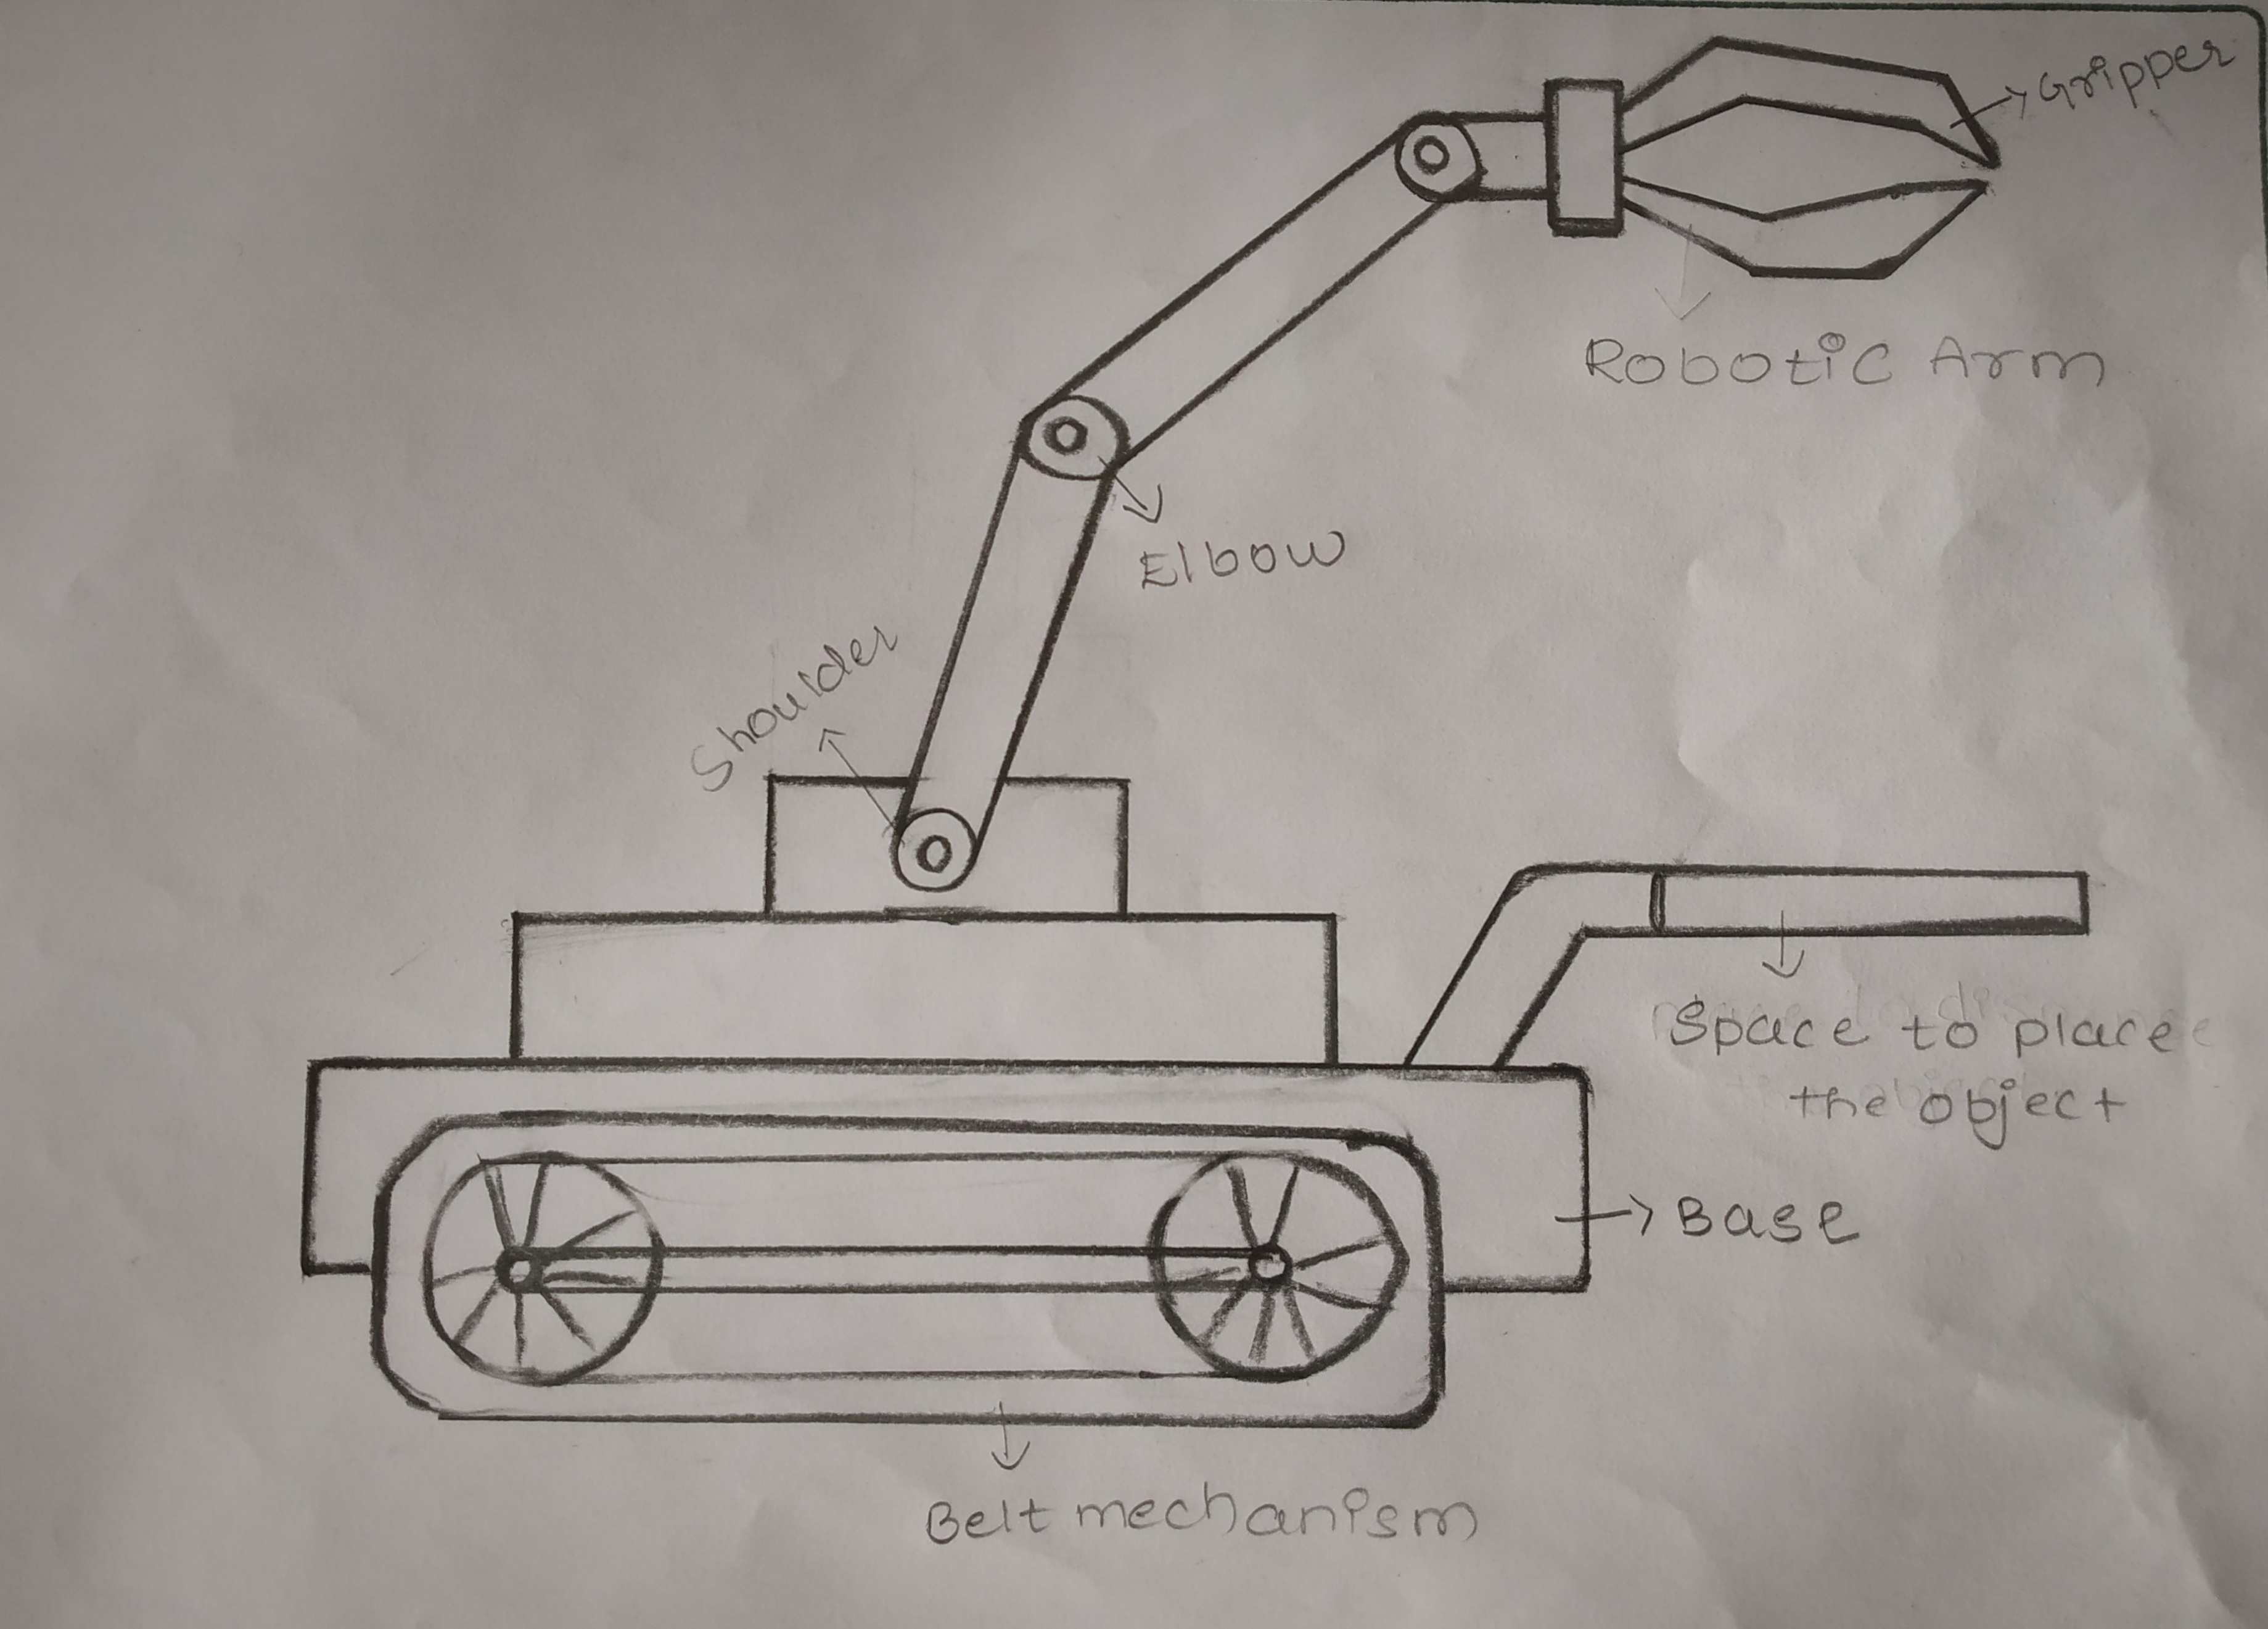 Gripper
Robotic Arm
Elbow
Shoulder
Space to place
the object
Base
Belt mechanism